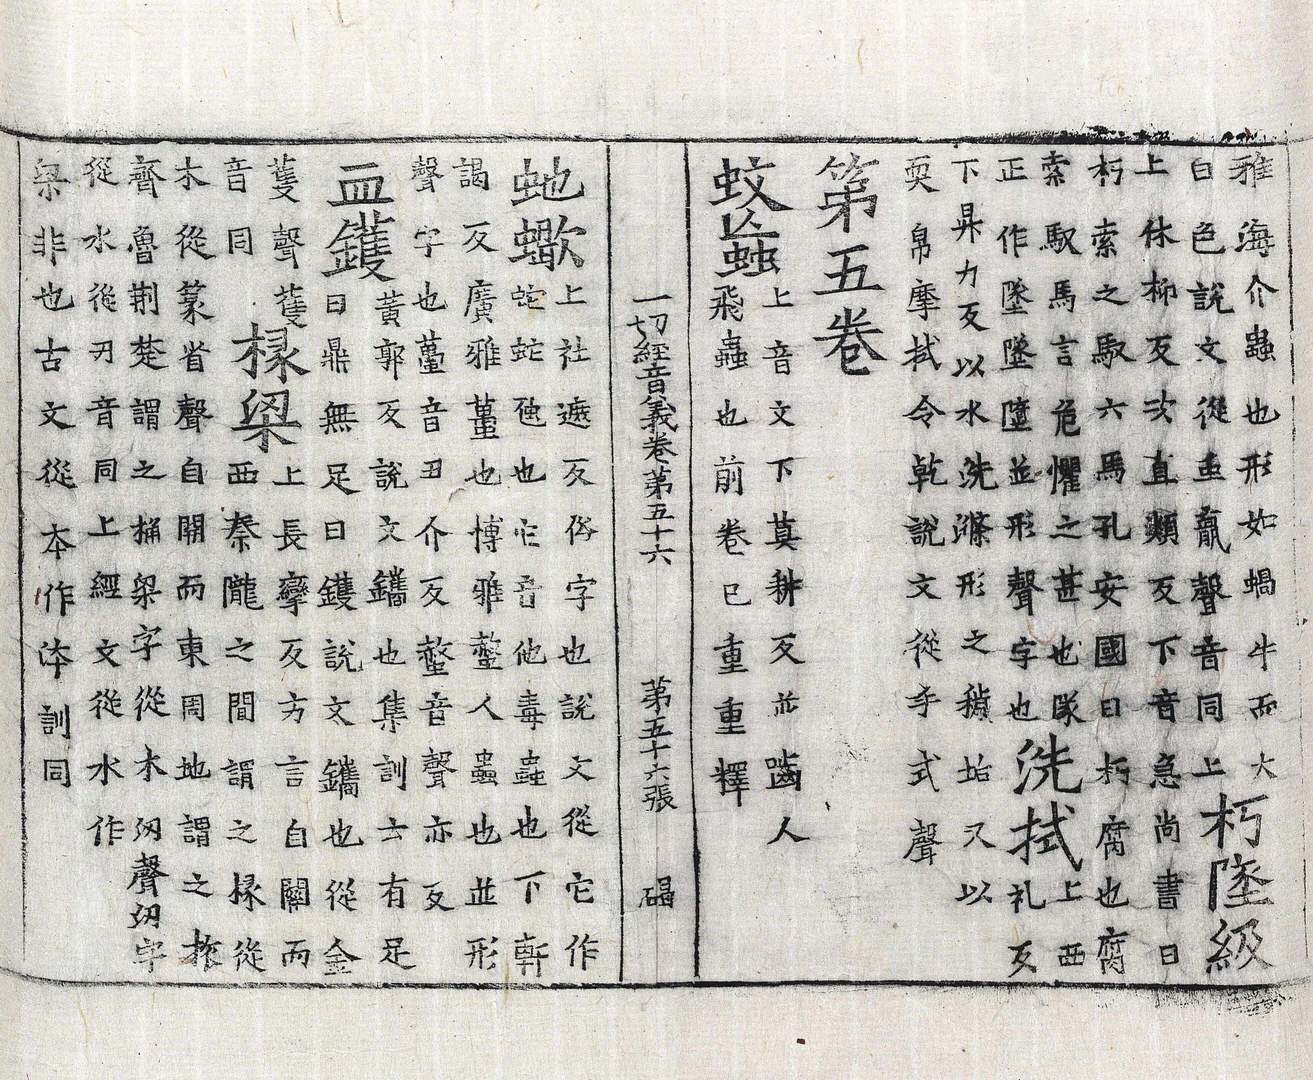 雅海介蟲也形如蝸牛而大
白色說文從虫羸聲音同上朽墜級
上休柳反次直類反下音急尚書曰
朽索之馭六馬孔安國曰朽腐也腐
索馭馬言危懼之甚也隊洗拭上西
正作墜墜墮並形聲字也礼反
下昇力反以水洗滌形之穢垢又以
耎帛摩拭令乾說文從手式聲
第五卷
蚊䖟上音文下莫耕反並嚙人
飛蟲也前卷已重重釋
一切經音義卷第五十六 第五十六張 碣
虵蠍上社遮反俗字也說文從它作
蛇蛇虺也它音他毒蟲也下軒
謁反廣雅蠆也博雅蠚人蟲也並形
聲字也蠆音丑介反蠚音聲亦反
血鑊黃郭反說文鑴也集訓云有足
曰鼎無足曰鑊說文鑴也從金
蒦聲蒦上長攣反方言自關而
音同椽梁西秦隴之間謂之椽從
木從篆省聲自關而東周地謂之榱
齊魯荆楚謂之桷梁字從木刅聲刅字
從水從刃音同上經文從水作
梁非也古文從夲作㳍訓同